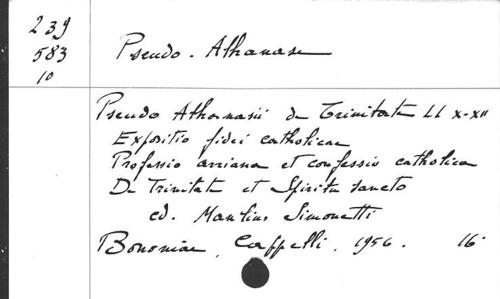 239
583
10
Pseudo - Athanase
Pseudo Athanasii de Trinitate LL X-XII
Expositio fidei catholicae
Professio arriana et confessio catholica
De Trinitate et Spiritu sancto
ed. Manlius Simonetti
Bononiae, Cappelli, 1956. 16°